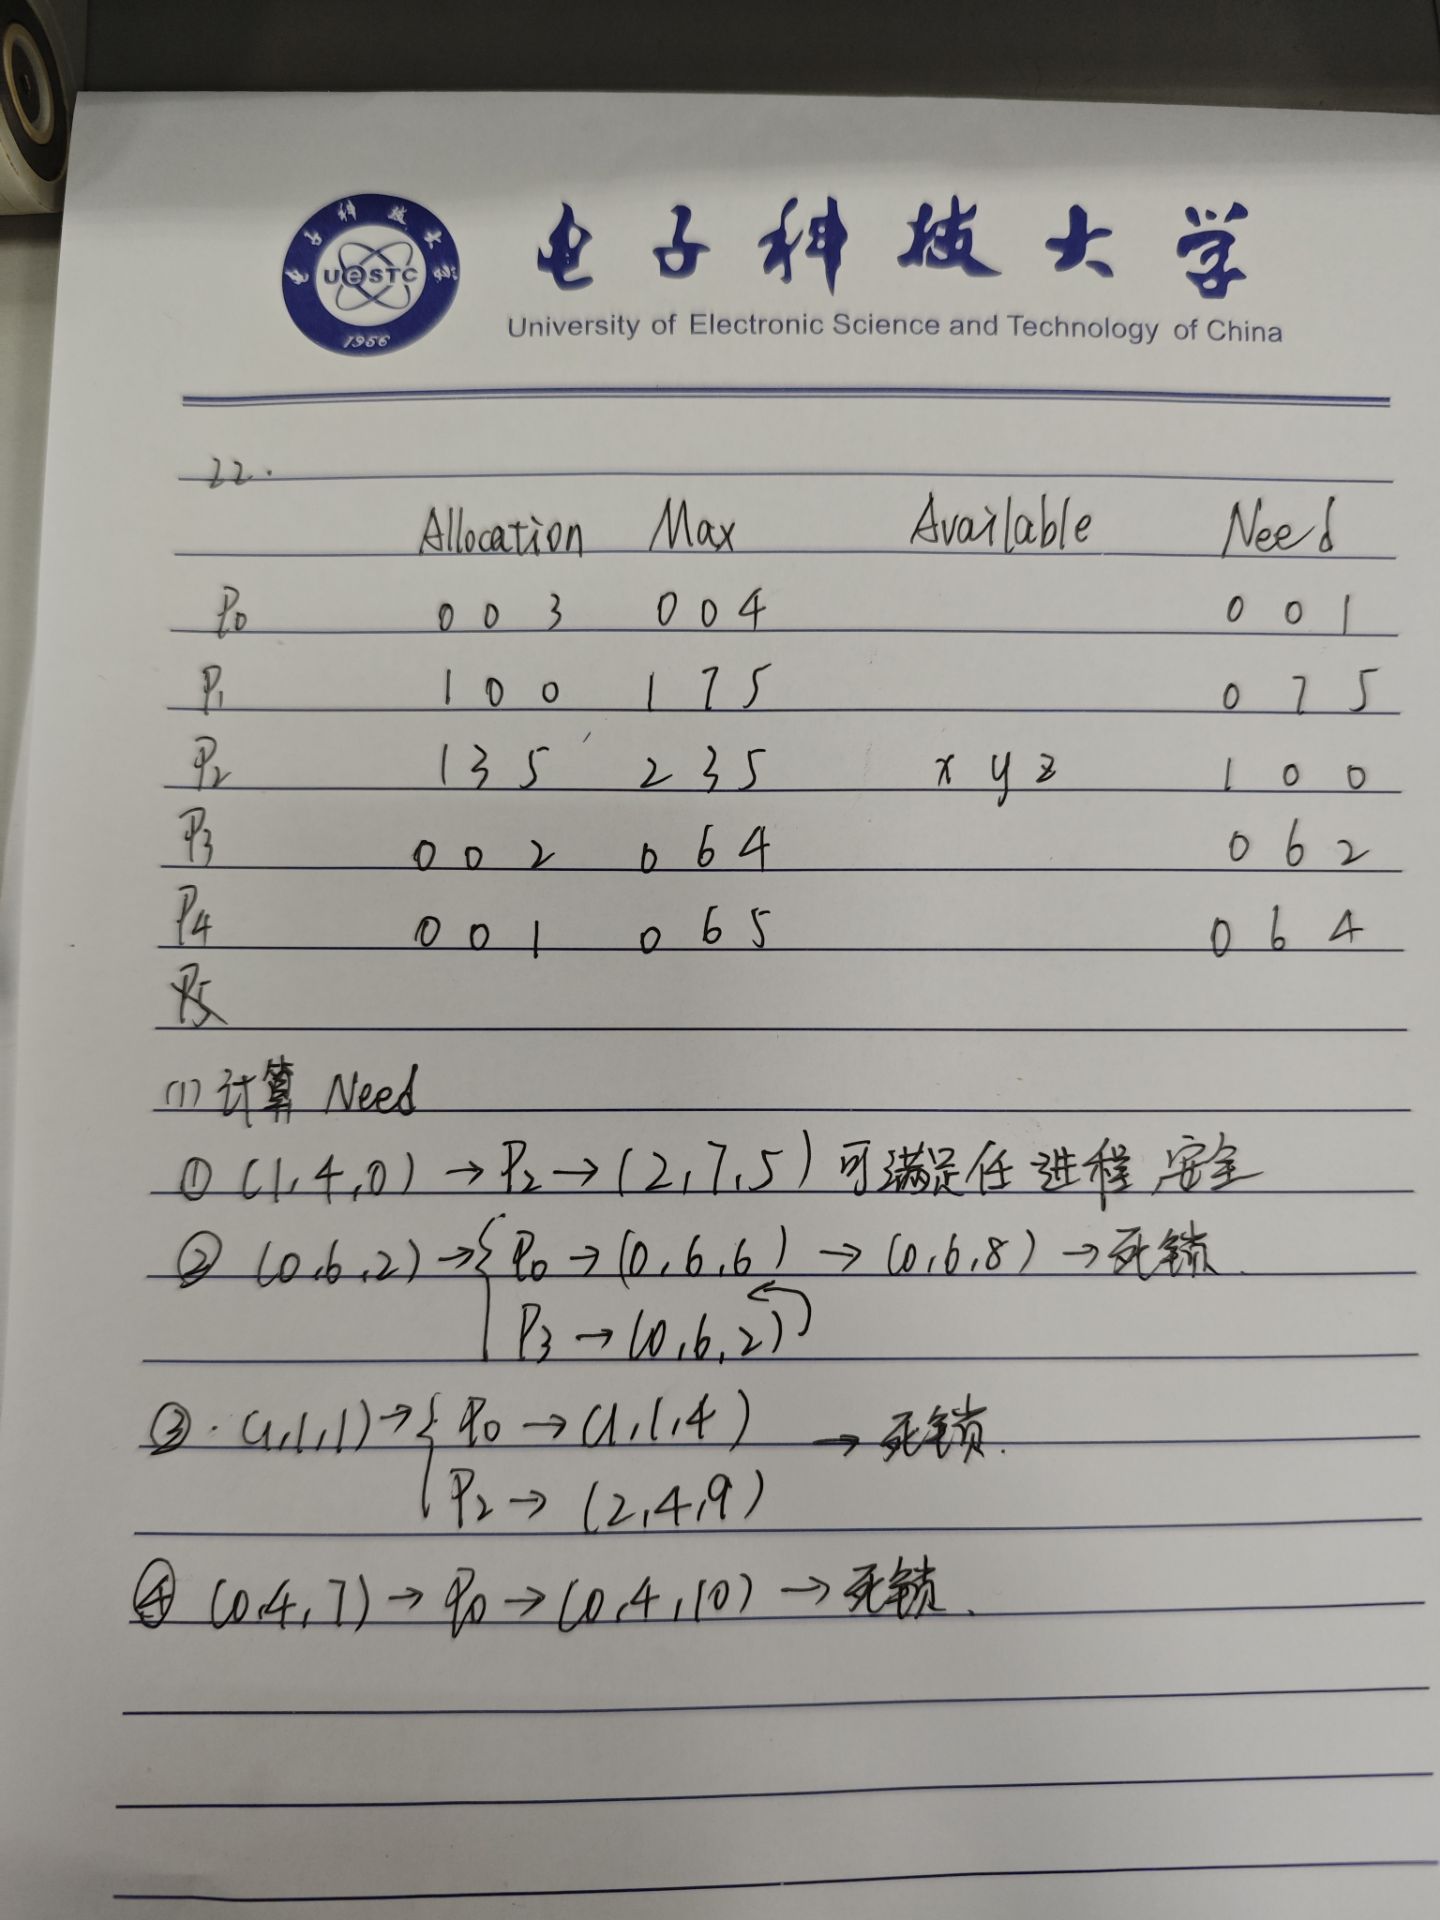 电子科技大学
UeSTC
1956
电子科技大学
University of Electronic Science and Technology of China
22.
Allocation Max Available Need
P0 0 0 3 0 0 4 0 0 1
P1 1 0 0 1 7 5 0 7 5
P2 1 3 5 2 3 5 x y z 1 0 0
P3 0 0 2 0 6 4 0 6 2
P4 0 0 1 0 6 5 0 6 4
(1) 计算 Need
① (1,4,0) → P2 → (2,7,5) 可满足任进程,安全
② (0,6,2) → { P0 → (0,6,6) → (0,6,8) → 死锁.
P3 → (0,6,2)
③ . (1,1,1) → { P0 → (1,1,4) → 死锁.
P2 → (2,4,9)
④ (0,4,7) → P0 → (0,4,10) → 死锁.